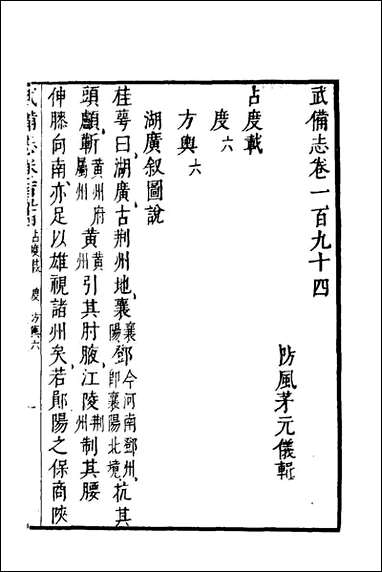 武備志卷一百九十四
防風茅元儀輯
占度載
度六
方輿六
湖廣叙圖說
桂萼曰湖廣古荆州地襄襄陽鄧今河南鄧州卽襄陽北境抗其
頭顱蘄黃州府屬州黃黃州引其肘腋江陵荆州制其腰
伸膝向南亦足以雄視諸州矣若鄖陽之保商陜
占度載 度 方輿六 一